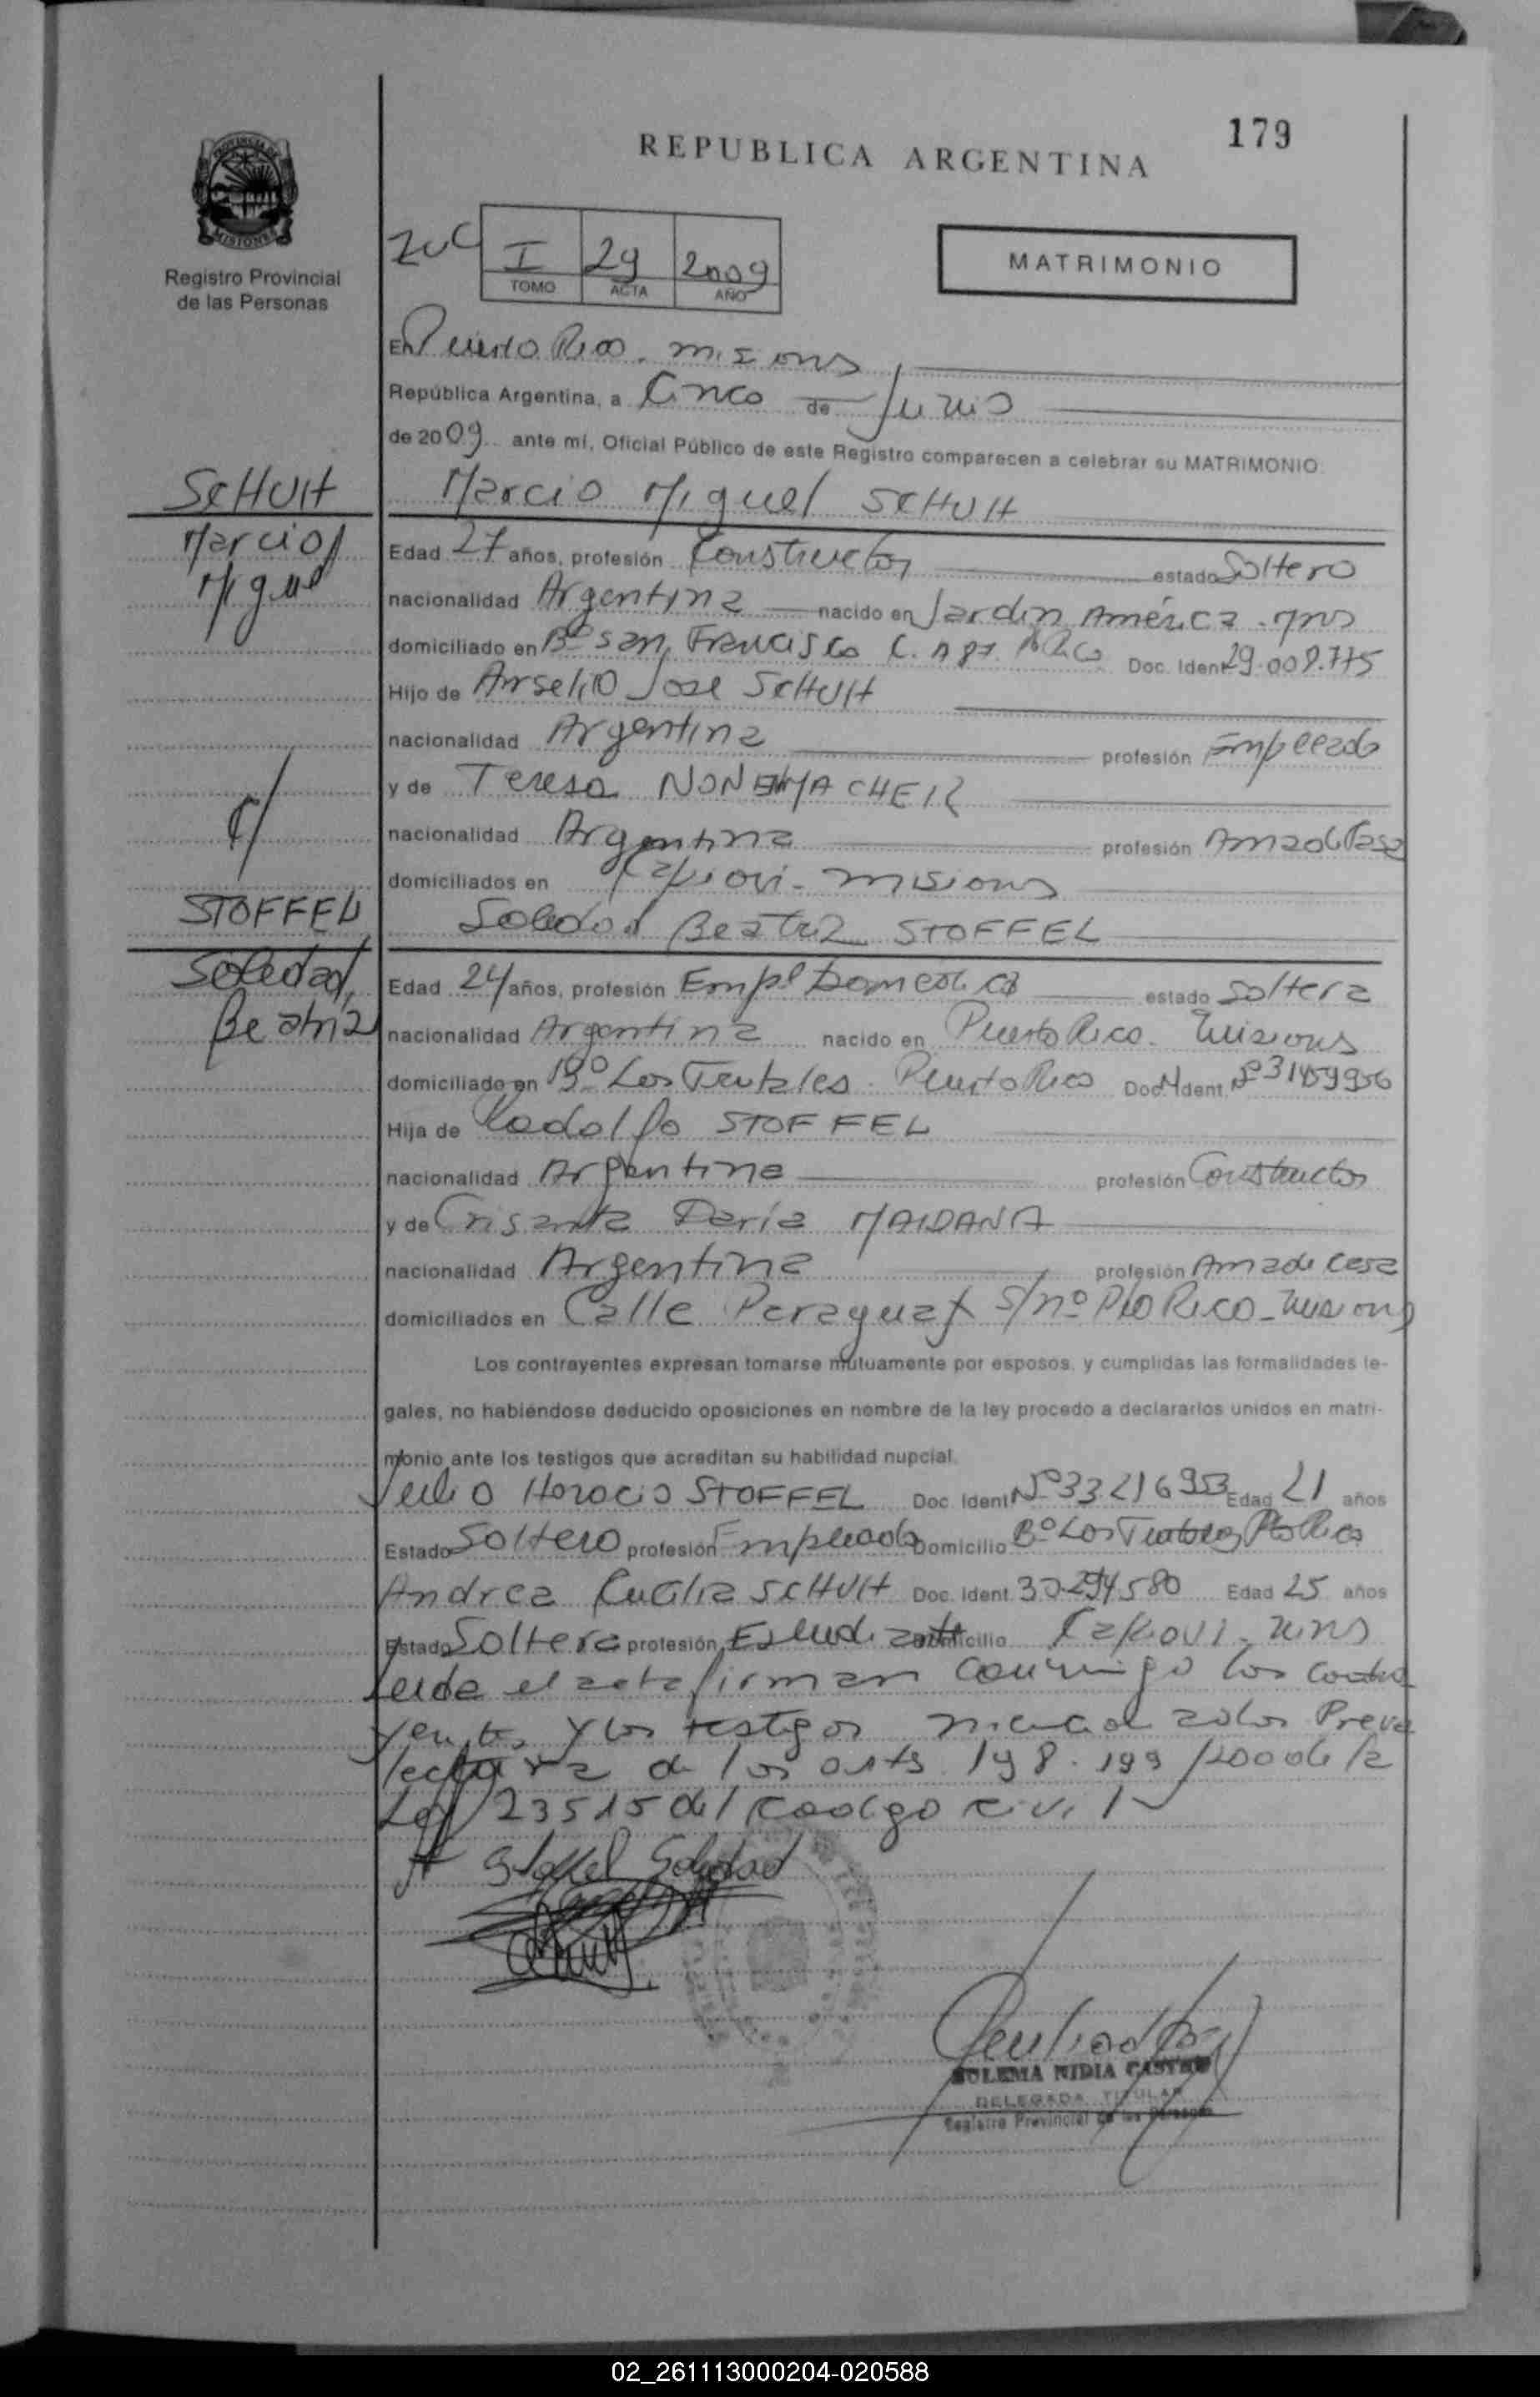 179
REPUBLICA ARGENTINA
PROVINCIA DE
MISIONES
Registro Provincial
de las Personas
I 29 2009
TOMO ACTA AÑO
MATRIMONIO
En Puerto Rico. misiones
República Argentina, a Cinco de Junio
de 2009 ante mí, Oficial Público de este Registro comparecen a celebrar su MATRIMONIO
SCHUH
Marcio Miguel SCHUH
Marcio
Miguel
Edad 27 años, profesión Constructor estado Soltero
nacionalidad Argentina nacido en Jardín América. mns
domiciliado en Bº San Francisco Doc. Ident 29.009.775
Hijo de Anselmo Jose SCHUH
nacionalidad Argentina profesión Empleado
y de Teresa NONEMACHER
nacionalidad Argentina profesión Ama de Casa
domiciliados en Capiovi - misiones
c/
STOFFEL
Soledad Beatriz STOFFEL
Soledad
Beatriz
Edad 24 años, profesión Emplª Domestica estado Soltera
nacionalidad Argentina nacido en Puerto Rico. Misiones
domiciliado en Bº Los Teutales. Puerto Rico Doc. Ident. Nº 31459956
Hija de Rodolfo STOFFEL
nacionalidad Argentina profesión Constructor
y de Crisanta Daria MAIDANA
nacionalidad Argentina profesión Ama de Casa
domiciliados en Calle Paraguay s/nº Pto Rico - Misiones
Los contrayentes expresan tomarse mutuamente por esposos, y cumplidas las formalidades le-
gales, no habiéndose deducido oposiciones en nombre de la ley procedo a declararlos unidos en matri-
monio ante los testigos que acreditan su habilidad nupcial.
Julio Horacio STOFFEL Doc. Ident Nº 33216953 Edad 21 años
Estado Soltero profesión Empleado Domicilio Bº Los Pto Rico
Andrea SCHUH Doc. Ident. 30.294.580 Edad 25 años
Estado Soltera profesión Estudiante Domicilio Capiovi - mns
Leida el acta firman conmigo los contra
yentes y los testigos mencionados Previa
lectura de los arts 198. 199 /200 de la
Ley 23515 del Codigo Civil
Stoffel Soledad
ZULEMA NIDIA CASTRO
DELEGADA TITULAR
Registro Provincial de las Personas
02_261113000204-020588